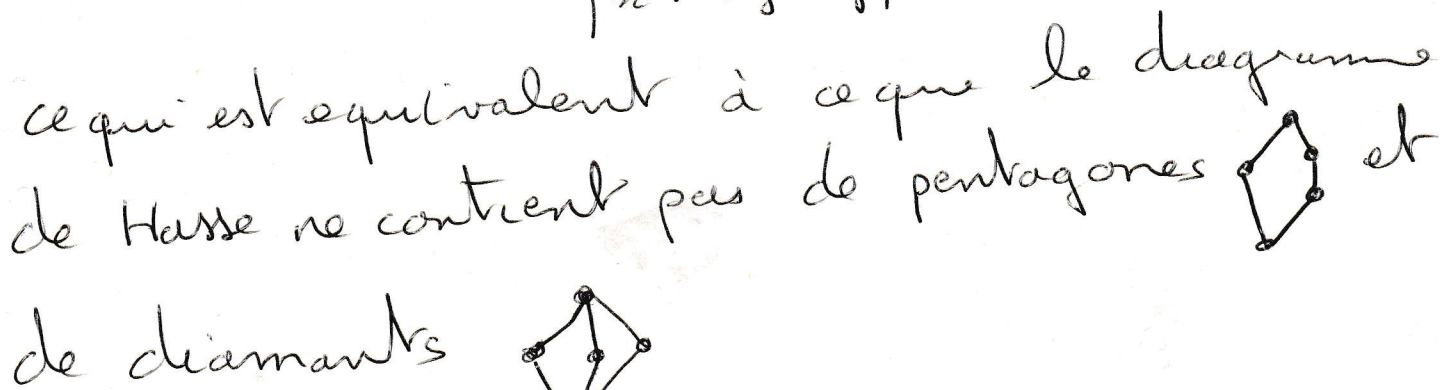 ce qui est equivalent à ce que le diagramme
de Hasse ne contient pas de pentagones et
de diamants